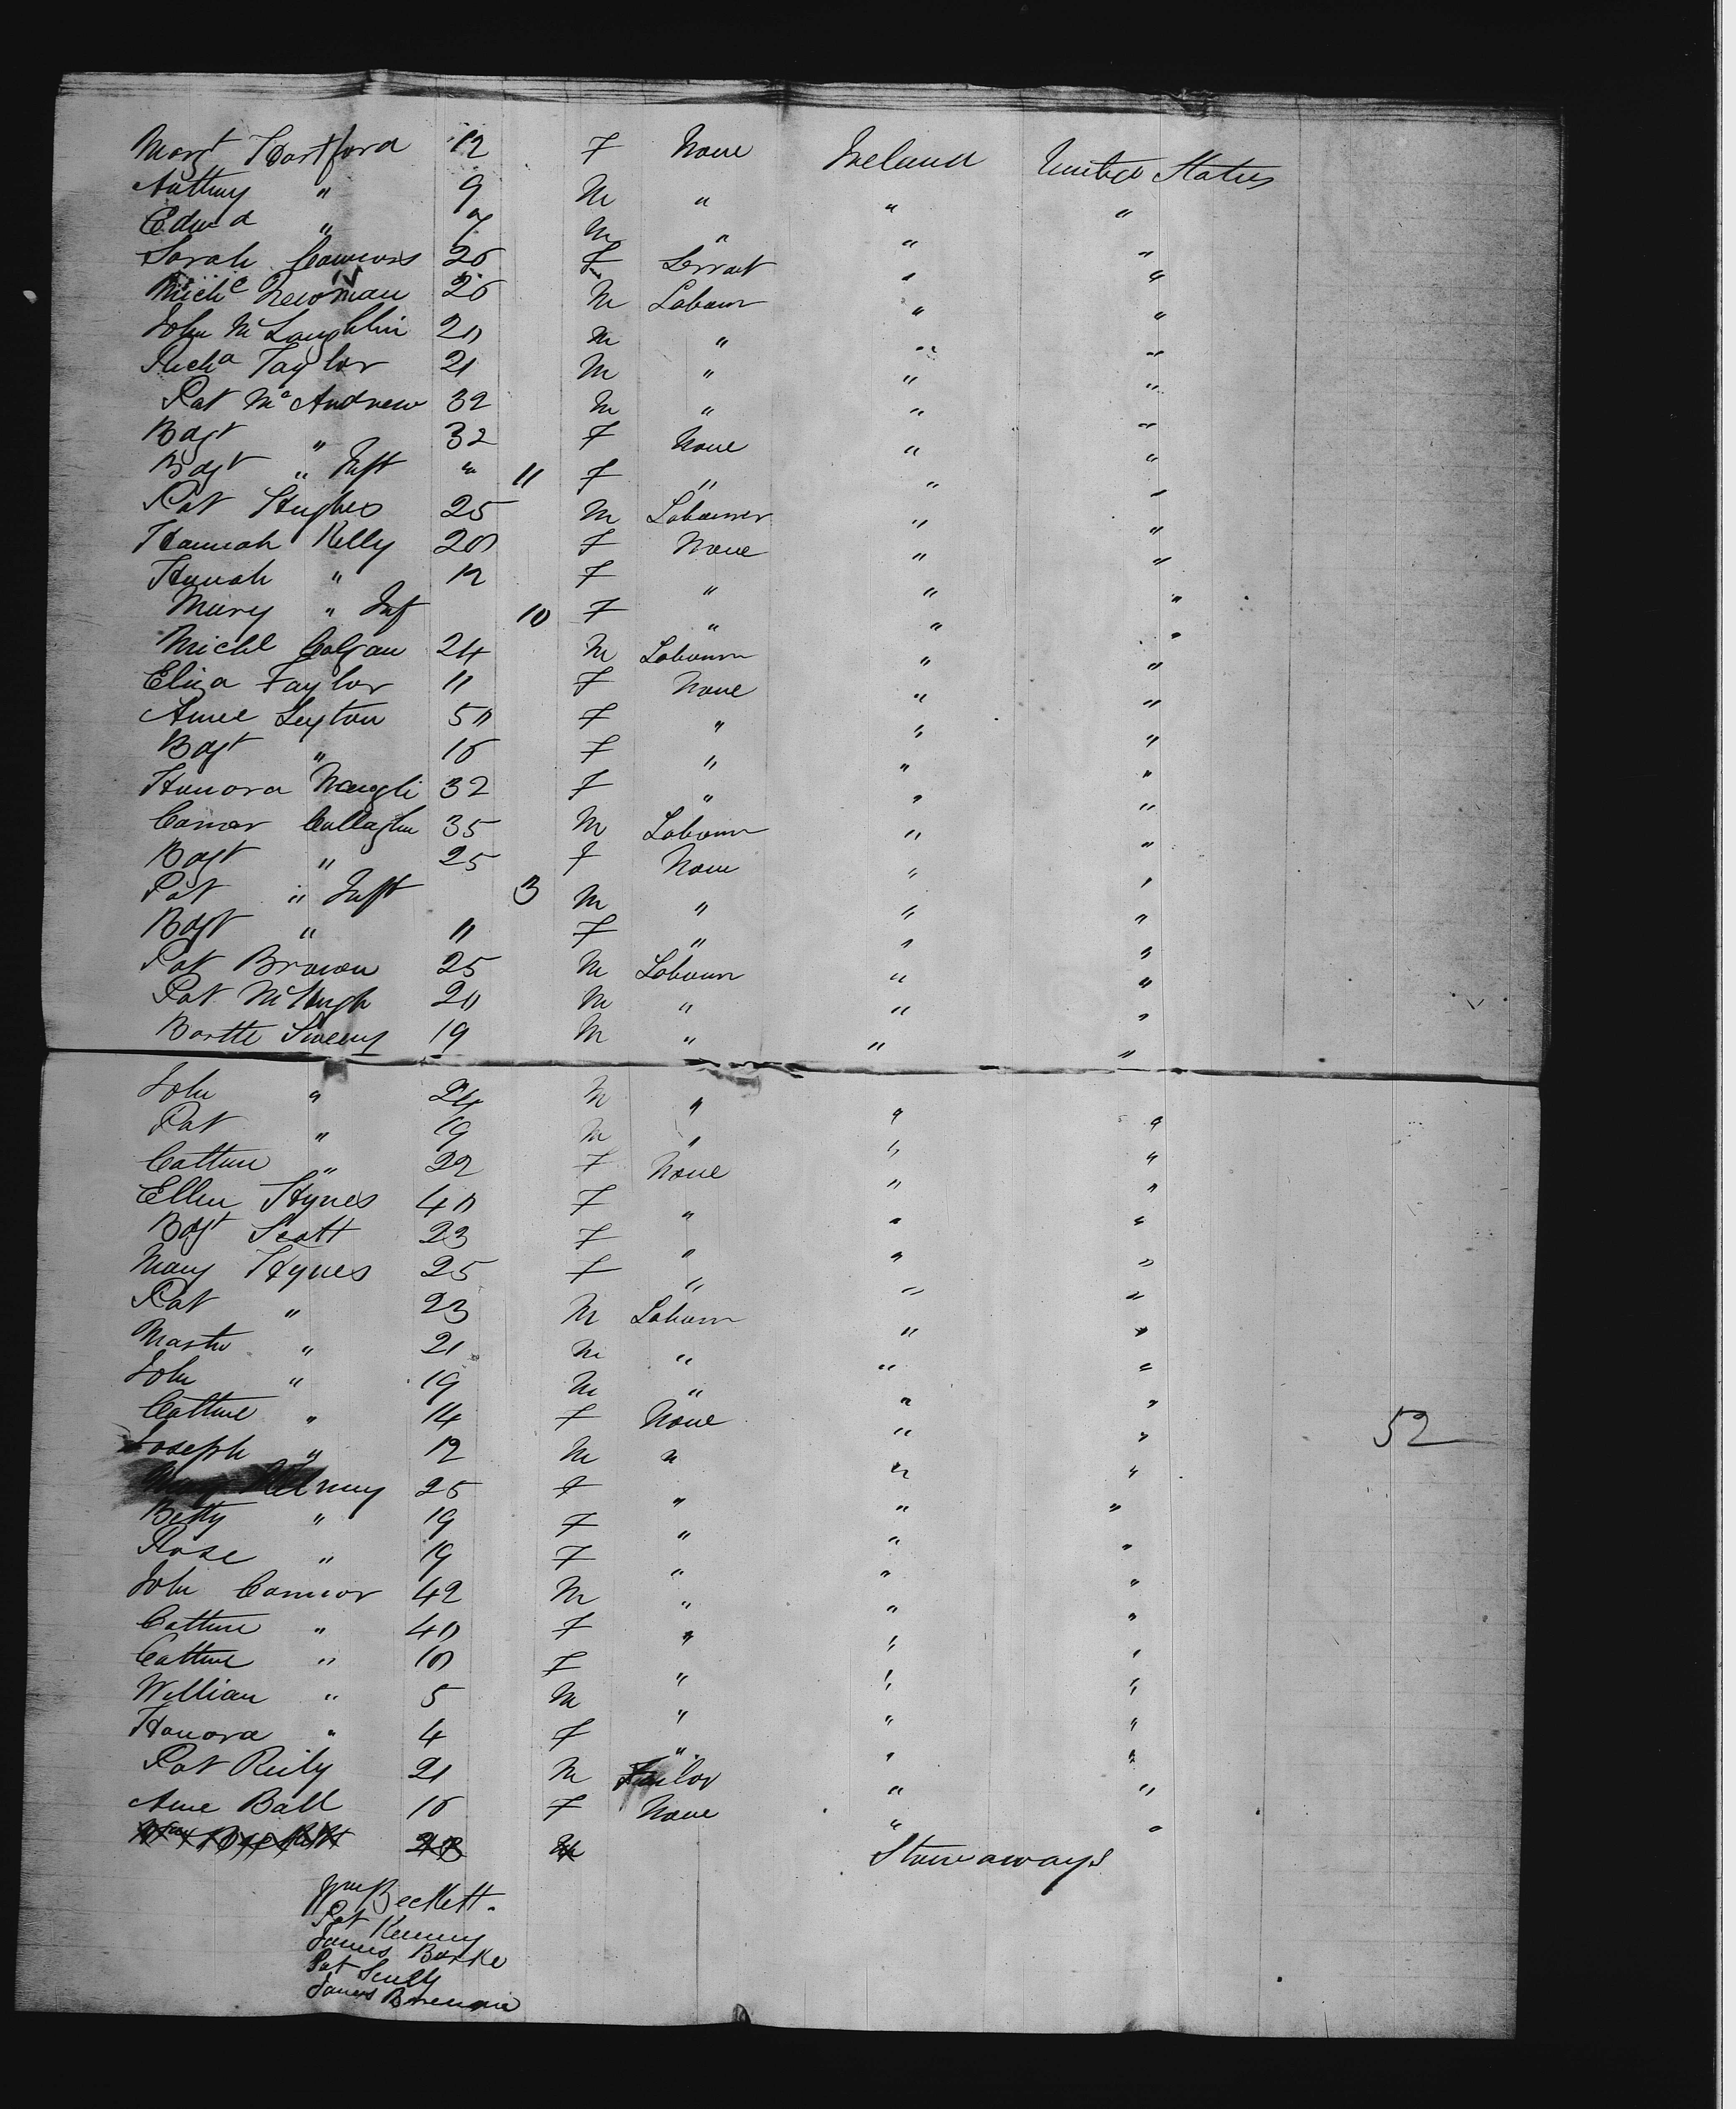 Margt Hartford 12 F None Ireland United States
Anthony " 9 M " " "
Edwd " 7 M " " "
Sarah Connors 26 F Servt " "
Michl Newman 26 M Labour " "
John McLaughlin 20 M " " "
Richd Taylor 21 M " " "
Pat McAndrew 32 M " " "
Bdgt " 32 F None " "
Bdgt " Inft " 11 F " " "
Pat Hughes 25 M Labourer " "
Hannah Kelly 20 F None " "
Hanah " 12 F " " "
Mary " Inf 10 F " " "
Michl Colgan 24 M Labourr " "
Eliza Taylor 11 F None " "
Anne Leyton 50 F " " "
Bdgt " 16 F " " "
Honora 32 F " " "
Connor Callaghn 35 M Labourr " "
Bdgt " 25 F None " "
Pat " Inft 3 M " " "
Bdgt " 11 F " " "
Pat Brown 25 M Labourr " "
Pat McHugh 20 M " " "
Bartle Sweeny 19 M " " "
John " 24 M " " "
Pat " 19 M " " "
Cathne " 22 F None " "
Ellen Hynes 40 F " " "
Bdgt Scott 23 F " " "
Mary Hynes 25 F " " "
Pat " 23 M Labourr " "
Martn " 21 M " " "
John " 19 M " " "
Cathne " 14 F None " "
Joseph " 12 M " " "
Mary 25 F " " "
Betty " 19 F " " "
Rose " 19 F " " "
John Connor 42 M " " "
Cathne " 40 F " " "
Cathne " 10 F " " "
William " 5 M " " "
Honora " 4 F " " "
Pat Reily 21 M Tailor " "
Anne Ball 16 F None " "
52
Stowaways
Wm Beckett.
Pat Kenny
James Burke
Pat Scully
James Brennan